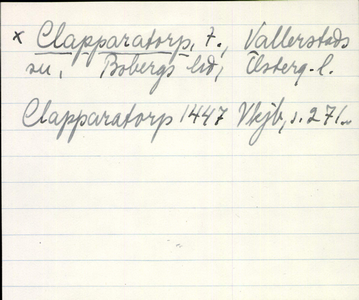 × Clapparatorp, t., Vallerstads
sn, Bobergs hd, Österg. l.
Clapparatorp 1447 Vkjb, s. 271